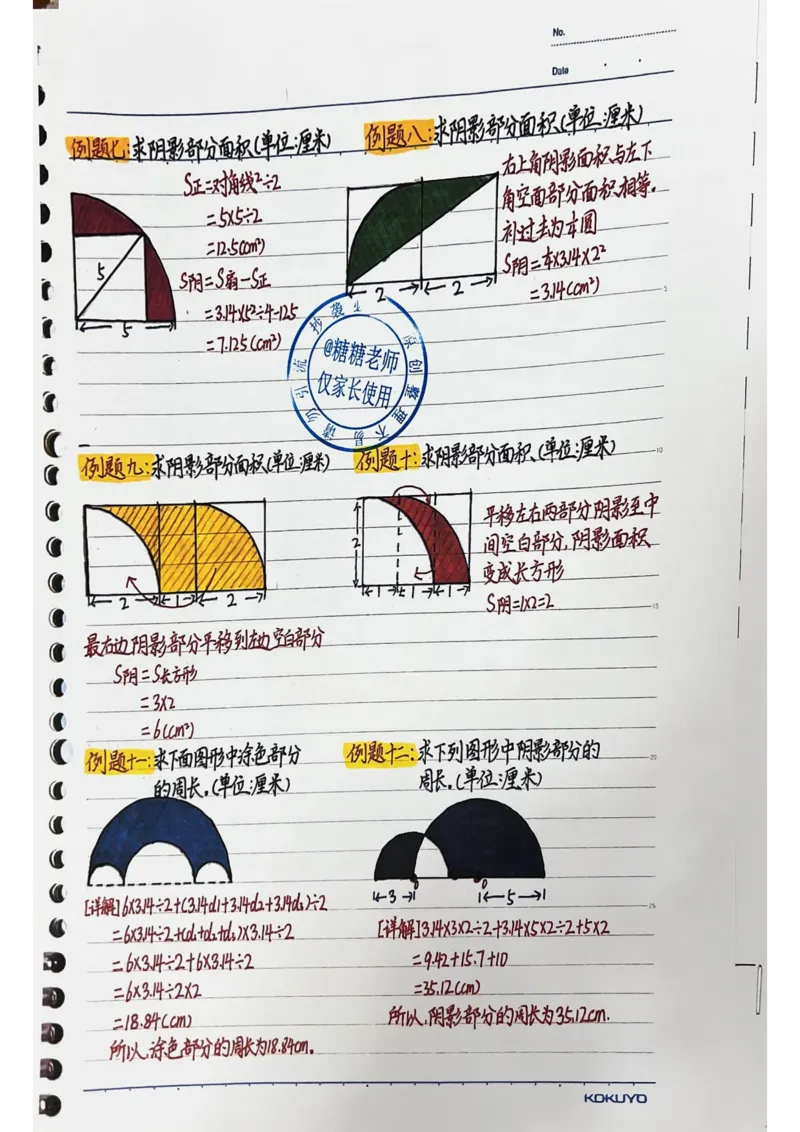 No.
Date
例题七:求阴影部分面积(单位:厘米)
S正=对角线²÷2
=5×5÷2
=12.5(cm²)
S阴=S扇-S正
=3.14×5²÷4-12.5
=7.125(cm²)
5
5
例题八:求阴影部分面积(单位:厘米)
右上角阴影面积与左下
角空面部分面积相等。
补过去为¼圆
S阴=¼×3.14×2²
=3.14(cm²)
2
2
@糖糖老师
仅家长使用
原创整理不易请勿引流抄袭
例题九:求阴影部分面积(单位:厘米)
2
1
2
最右边阴影部分平移到左边空白部分
S阴=S长方形
=3×2
=6(cm²)
例题十:求阴影部分面积(单位:厘米)
2
1
1
1
平移左右两部分阴影至中
间空白部分,阴影面积
变成长方形
S阴=1×2=2
例题十一:求下面图形中涂色部分
的周长。(单位:厘米)
[详解]6×3.14÷2+(3.14d₁+3.14d₂+3.14d₃)÷2
=6×3.14÷2+(d₁+d₂+d₃)×3.14÷2
=6×3.14÷2+6×3.14÷2
=6×3.14÷2×2
=18.84(cm)
所以,涂色部分的周长为18.84cm。
例题十二:求下列图形中阴影部分的
周长。(单位:厘米)
3
0
0
5
[详解]3.14×3×2÷2+3.14×5×2÷2+5×2
=9.42+15.7+10
=35.12(cm)
所以,阴影部分的周长为35.12cm.
5
10
15
20
25
KOKUYO